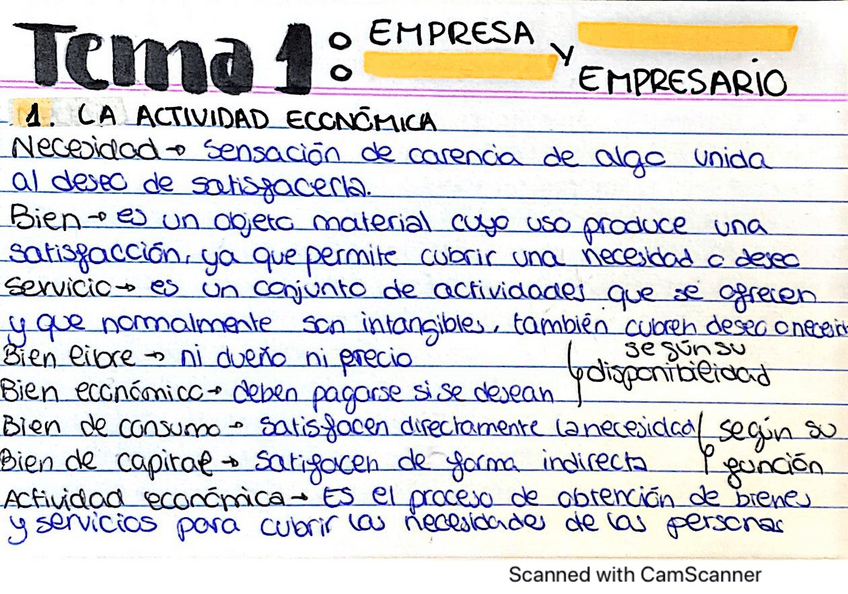 Tema 1: EMPRESA Y EMPRESARIO
1. LA ACTIVIDAD ECONÓMICA
Necesidad → sensación de carencia de algo unida
al deseo de satisfacerla.
Bien → es un objeto material cuyo uso produce una
satisfacción, ya que permite cubrir una necesidad o deseo
Servicio → es un conjunto de actividades que se ofrecen
y que normalmente son intangibles, también cubren deseo o necesid
Bien libre → ni dueño ni precio
según su
disponibilidad
Bien económico → deben pagarse si se desean
Bien de consumo → satisfacen directamente la necesidad
Bien de capital → satifacen de forma indirecta
según su
función
Actividad económica → Es el proceso de obtención de bienes
y servicios para cubrir las necesidades de las personas
Scanned with CamScanner